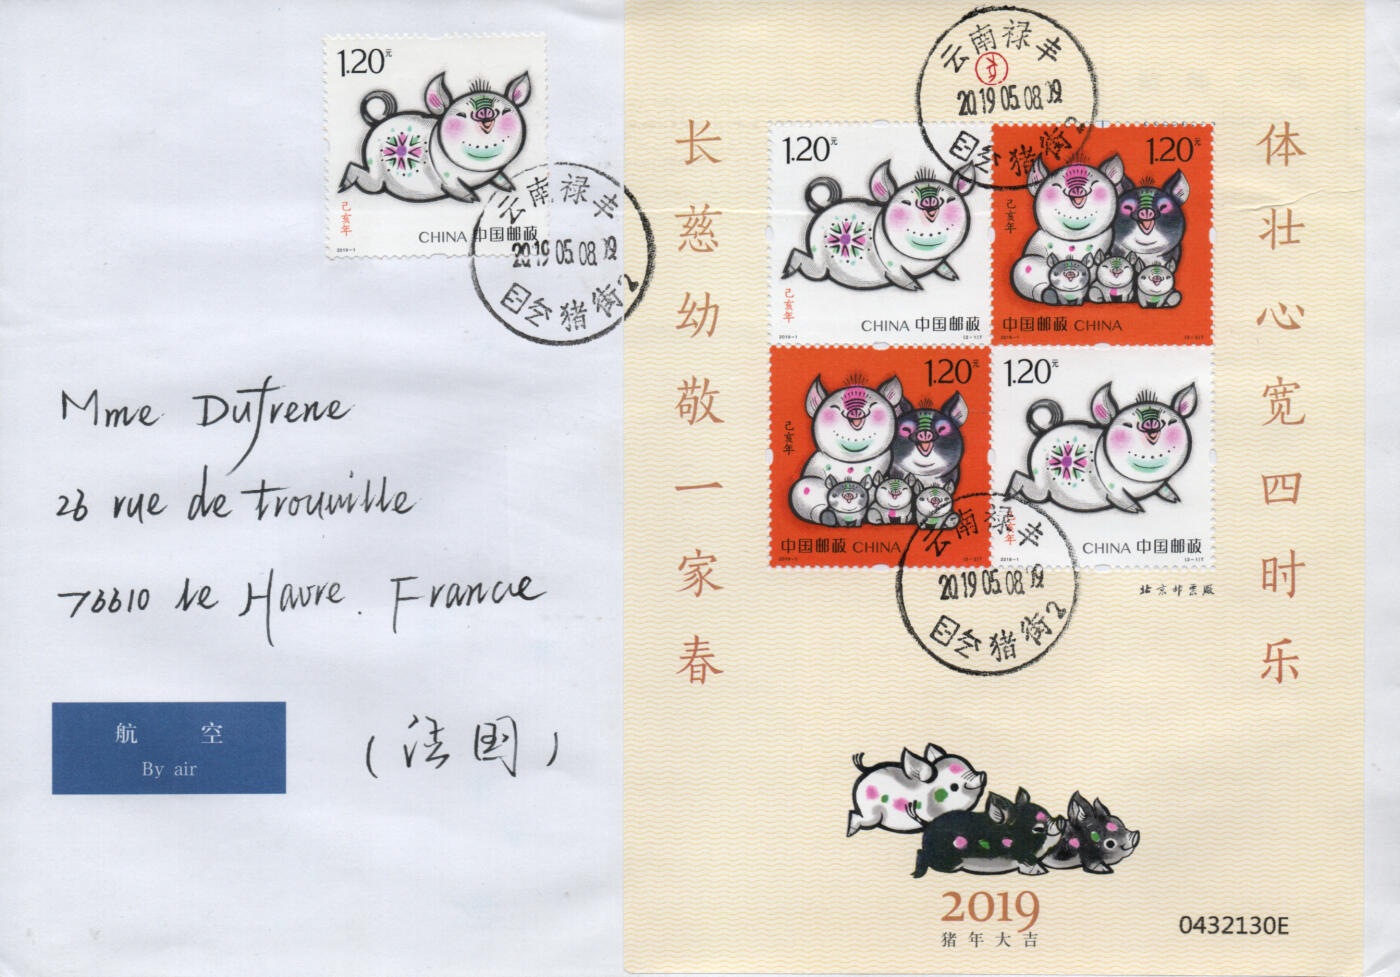 1.20元
己亥年
2019-1
CHINA 中国邮政
云南禄丰
2019.05.08.09
猪街2
Mme Dufrene
26 rue de trouville
76610 le Havre. France
(法国)
航 空
By air
长慈幼敬一家春
云南禄丰
2019.05.08.09
猪街2
1.20元
己亥年
CHINA 中国邮政
2019-1 (2-1)T
1.20元
己亥年
中国邮政 CHINA
2019-1 (2-2)T
1.20元
己亥年
中国邮政 CHINA
2019-1 (2-2)T
1.20元
亥年
CHINA 中国邮政
2019-1 (2-1)T
云南禄丰
2019.05.08.09
猪街2
北京邮票厂
体壮心宽四时乐
2019
猪年大吉
0432130E